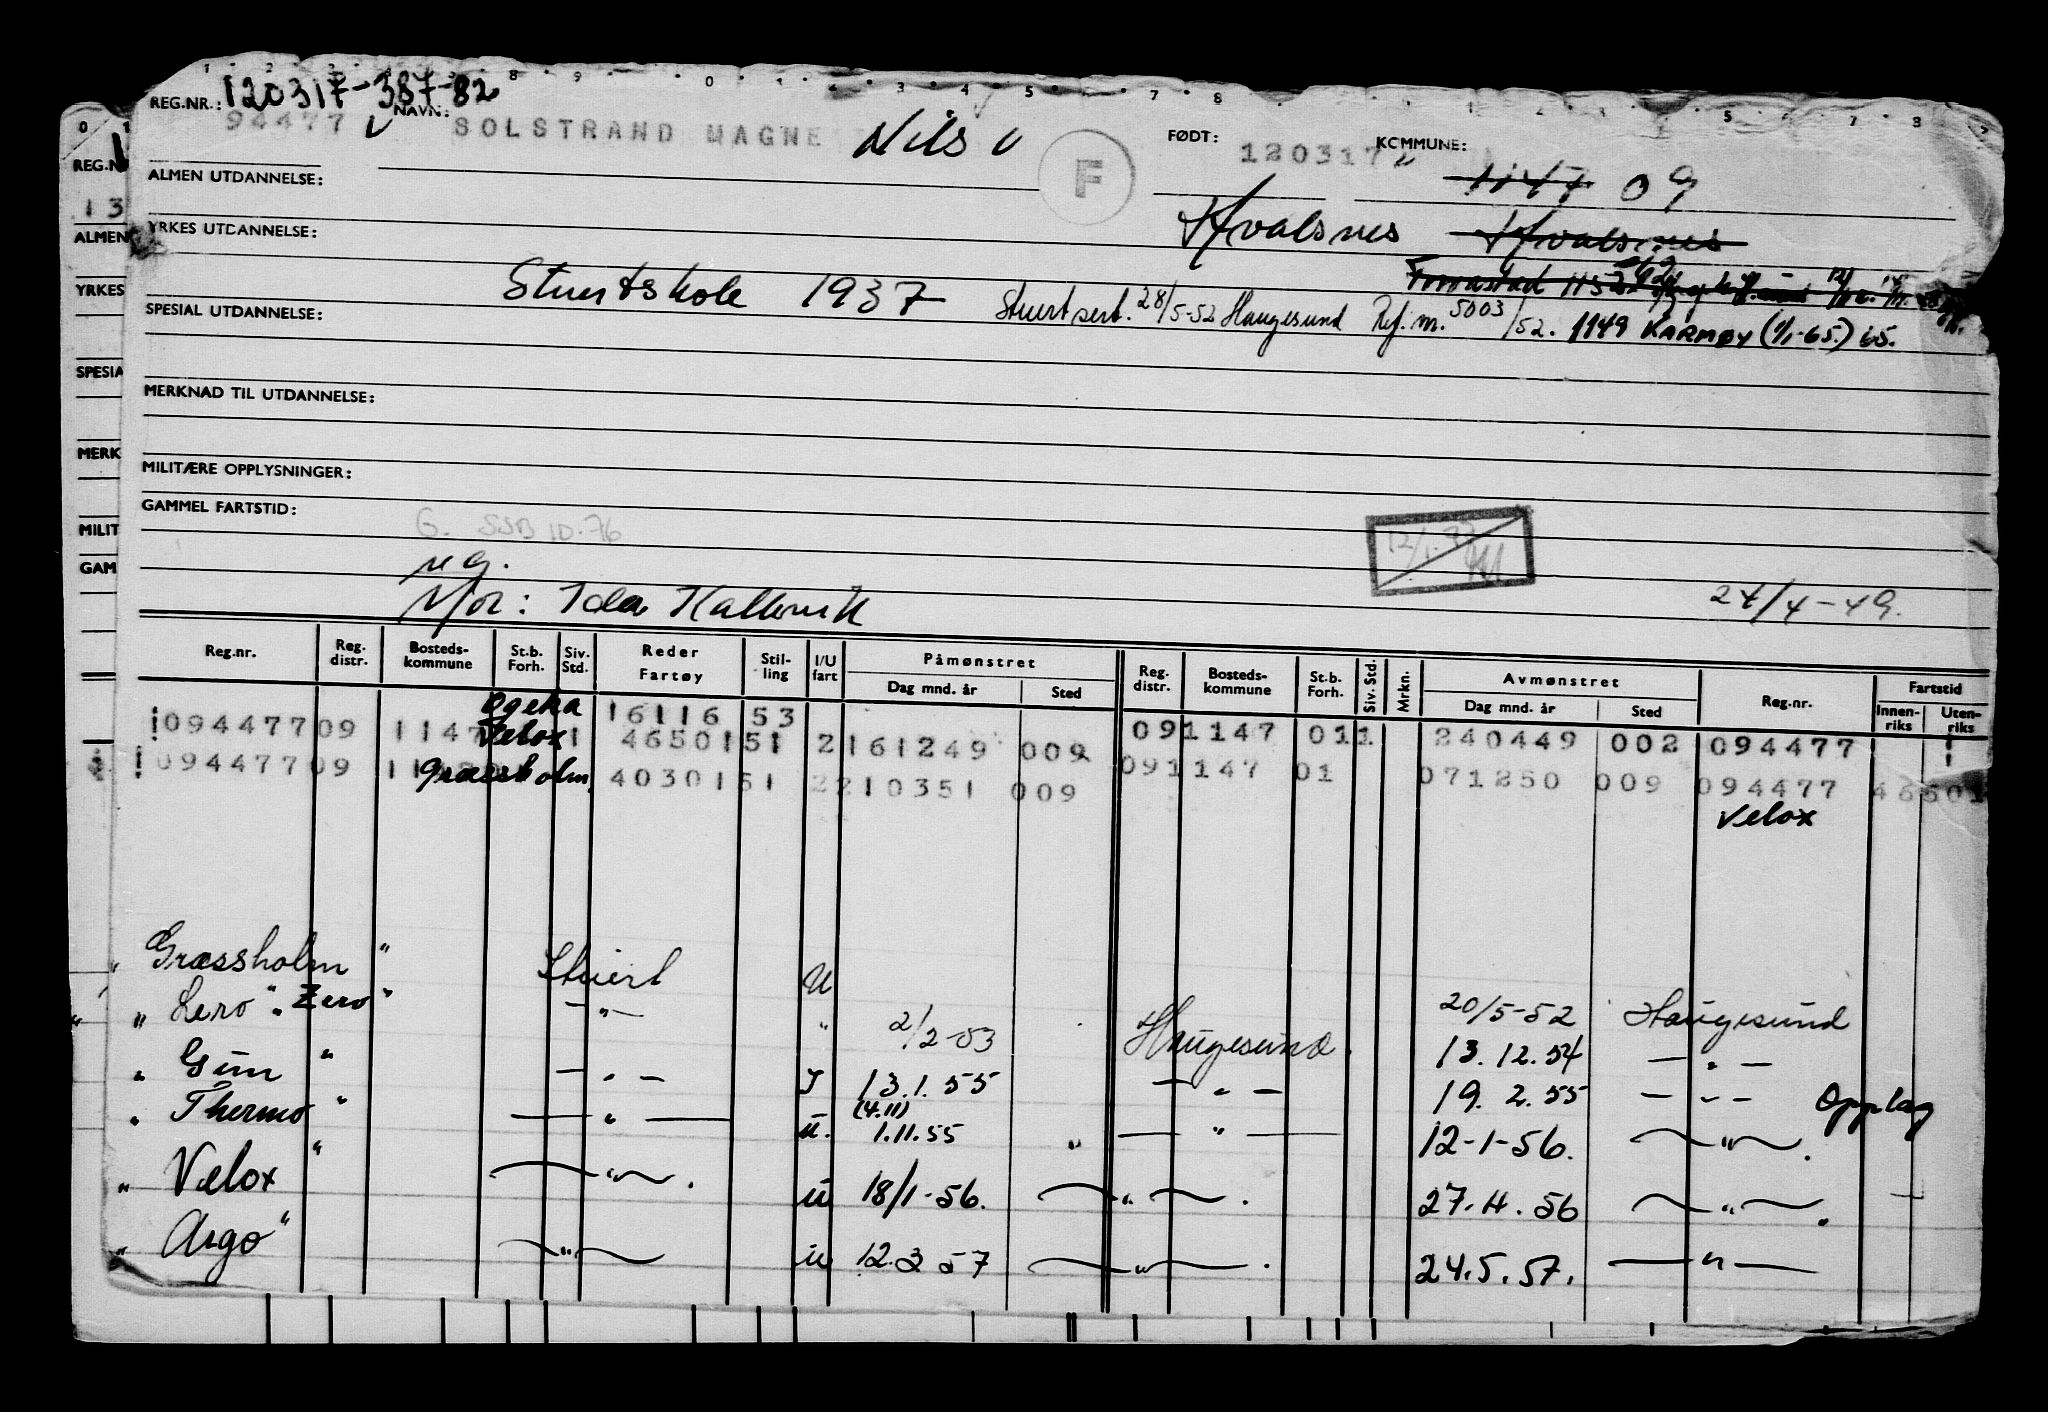 REG.NR.: 120317-387-82
94477 NAVN: SOLSTRAND MAGNE Nils F FØDT: 120317 KOMMUNE: 1147 09
ALMEN UTDANNELSE: Hvalsnes Hvalsnes
YRKES UTDANNELSE: Stuertskole 1937 Stuert sert. 28/5-52 Haugesund Ref. nr. 5003/52. 1149 KARMØY (1/1-65.) 65.
SPESIAL UTDANNELSE:
MERKNAD TIL UTDANNELSE:
MILITÆRE OPPLYSNINGER:
GAMMEL FARTSTID: G. SSB 10.76
ug.
Mor: Ida Kallevik 24/4-49.
REG.N
13
ALMEN
YRKES
SPESIA
MERK
MILIT
GAM
Reg.nr. Reg. distr. Bosteds-kommune St.b. Forh. Siv. Std. Reder Fartøy Stil-ling I/U fart Påmønstret Dag mnd. år Sted Reg. distr. Bosteds-kommune St.b. Forh. Siv. Std. Mrkn. Avmønstret Dag mnd. år Sted Reg.nr. Fartstid Innen-riks Uten-riks
Ogeka 16116 53 091147 011 240449 002 094477
094477 09 1147 Velox 1 46501 51 2 161249 009 091147 01 071250 009 094477 46501
094477 09 11 Græssholm 40301 51 2 210351 009 Velox
„ Græssholm " Stuert U 20/5-52 Haugesund
„ Lero " „ Zero " — " — " 2/2-53 Haugesund. 13.12.54 — " —
„ Gun " — " — I 13.1.55 — " — 19.2.55 — " — Opplag
„ Thermo " — " — u. (4.11) 1.11.55 " — " — 12-1-56. — " —.
„ Velox " — " —. u 18/1-56. — " —. 27.4.56 — " —.
„ Argo " — " — u 12.3 57 — " —. 24.5.57. — " —